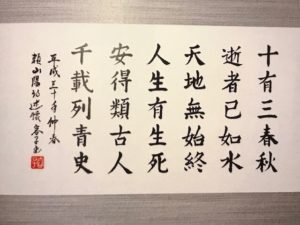 十有三春秋
逝者已如水
天地無始終
人生有生死
安得類古人
千載列青史
平成三十年仲春
頼山陽初述懐